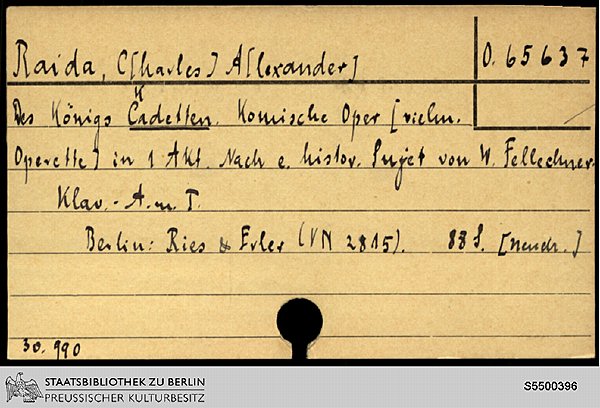 Raida, C[harles] A[lexander]
O. 65637
K
Des Königs Cadetten. Komische Oper [vielm.
Operette] in 1 Akt. Nach e. histor. Sujet von W. Fellechner.
Klav.-A. m. T.
Berlin: Ries & Erler (VN 2815). 88 S. [Neudr.]
30. 990
STAATSBIBLIOTHEK ZU BERLIN
PREUSSISCHER KULTURBESITZ
S5500396